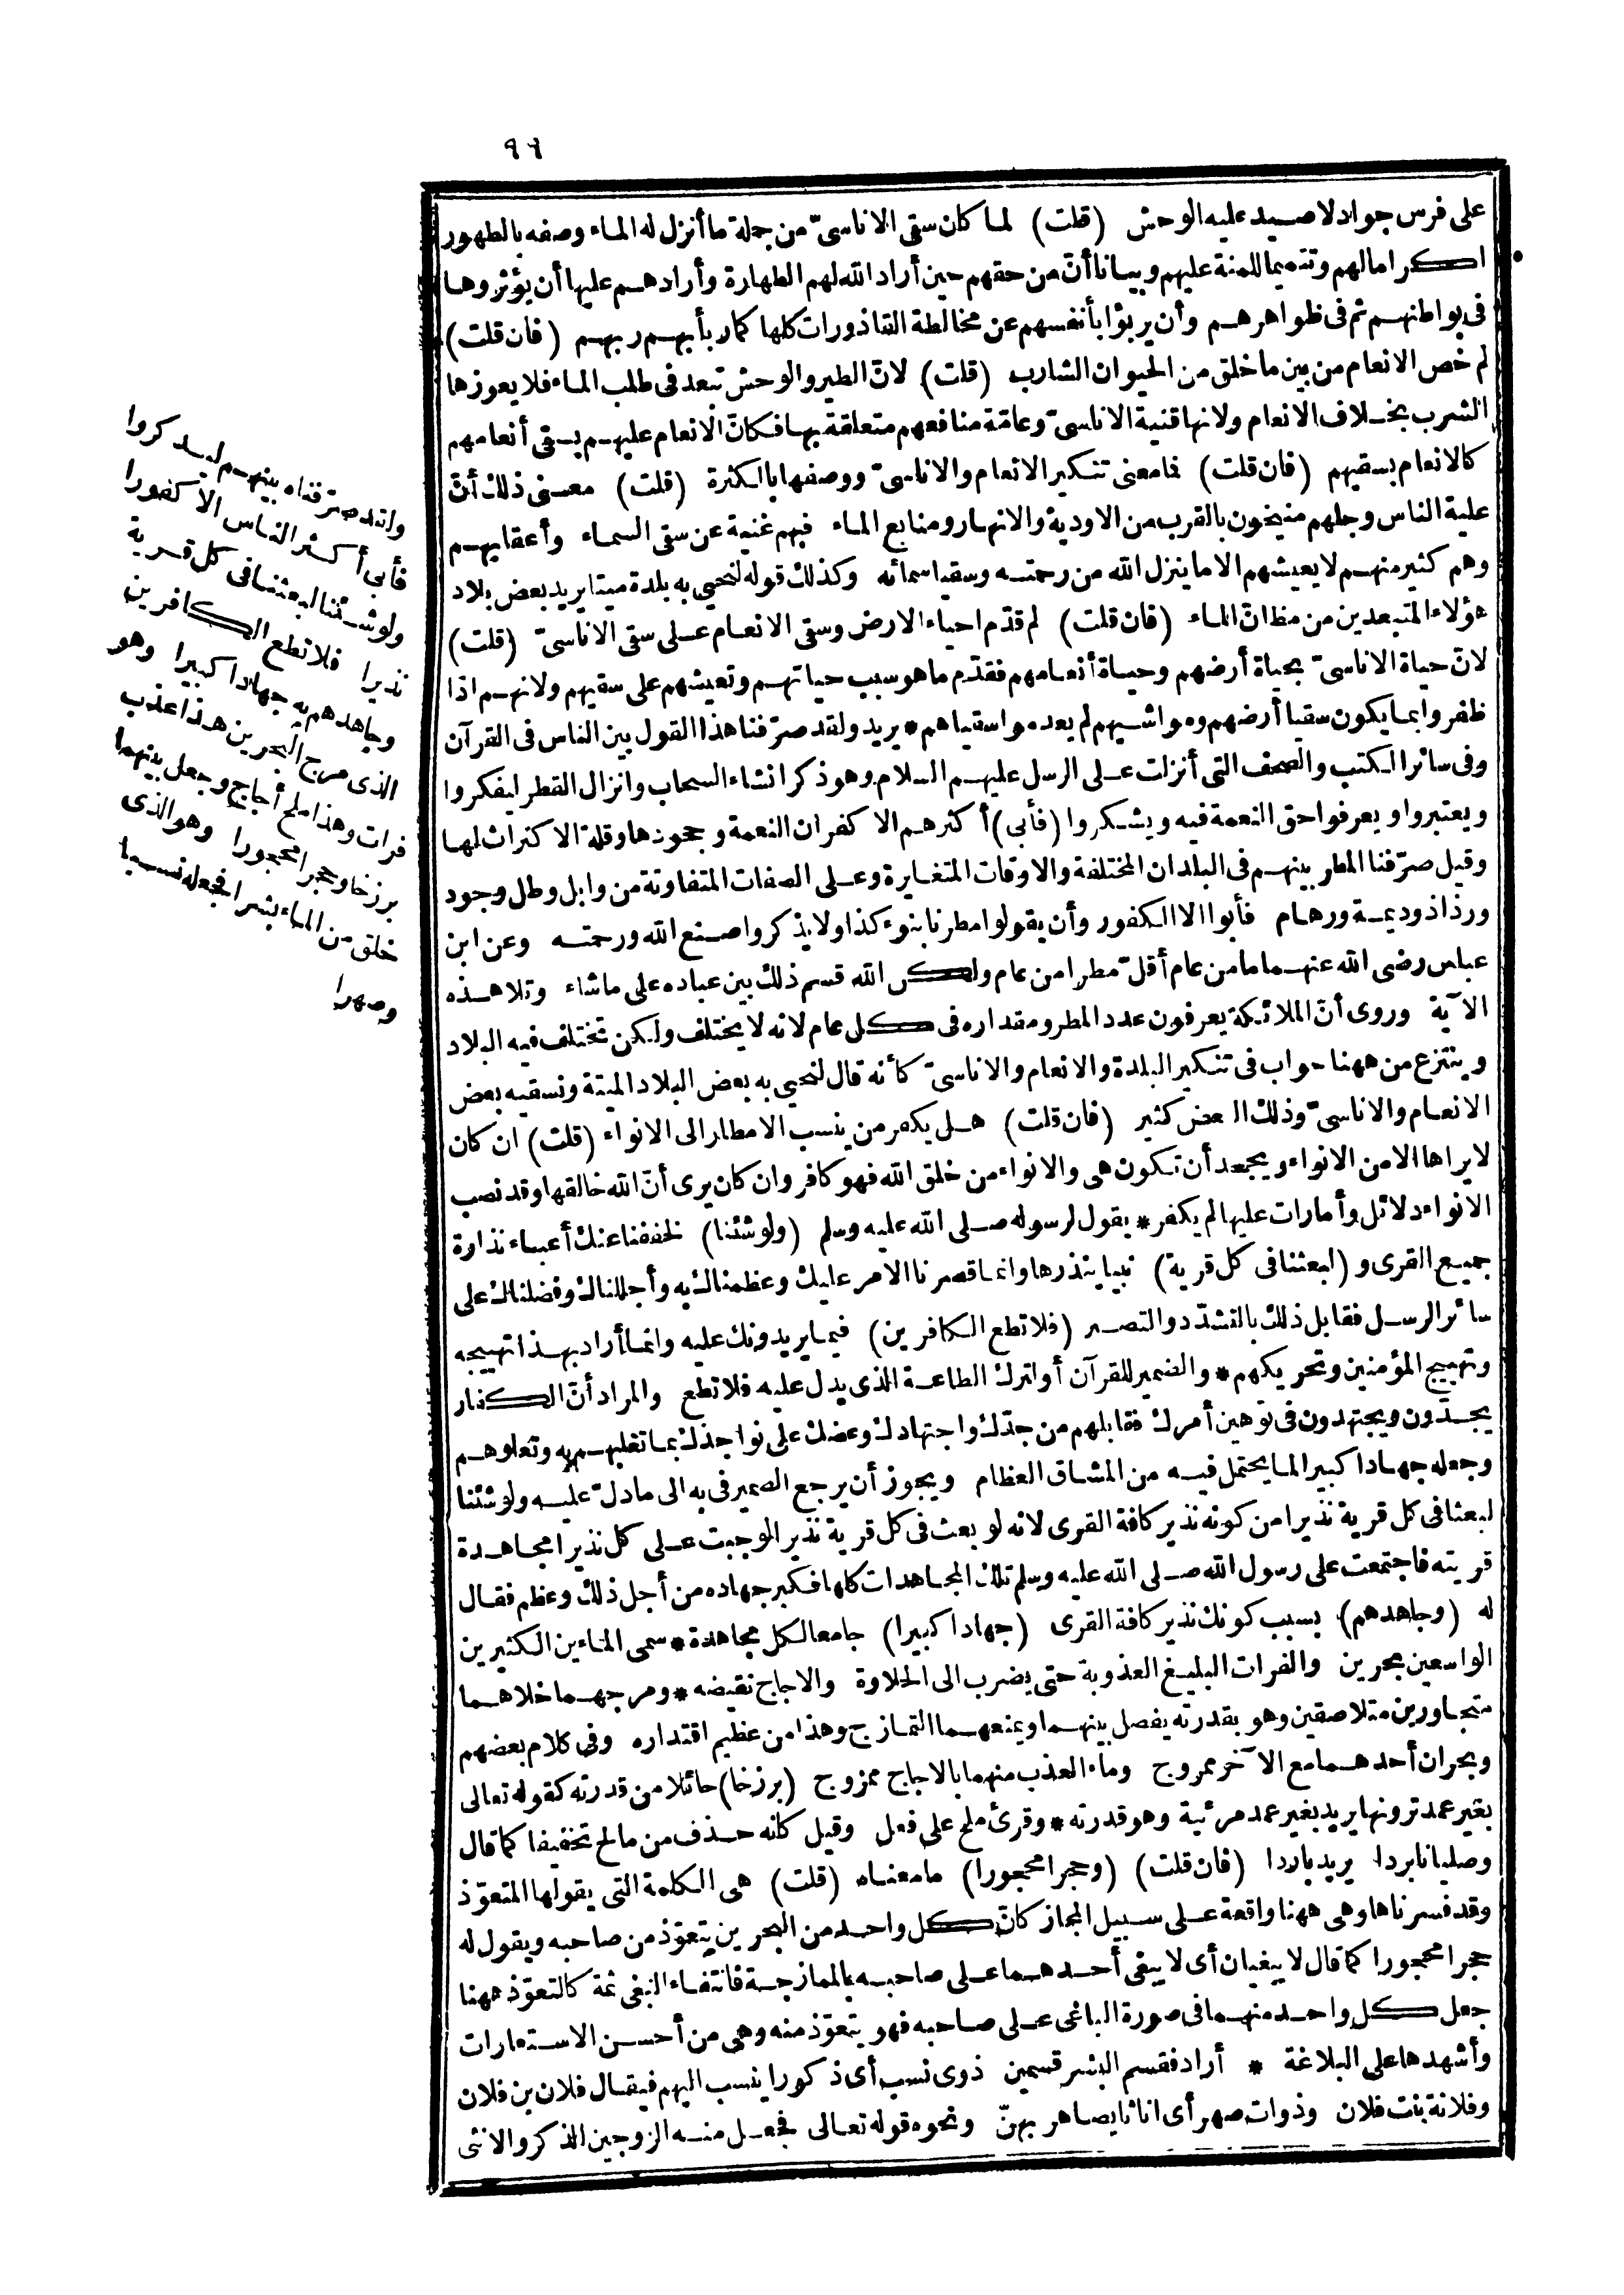 ٩٦
على فرس جواد لاصيد عليه الوحش (قلت) لما كان سقى الاناسىّ من جملة ما أنزل له الماء وصفه بالطهور
اكراما لهم وتتميما للمنة عليهم وبيانا أنّ من حقهم حين أراد الله لهم الطهارة وأرادهم عليها أن يؤثروها
فى بواطنهم ثم فى ظواهرهم وأن يربؤا بأنفسهم عن مخالطة القاذورات كلها كما ربأ بهم ربهم (فان قلت)
لم خص الانعام من بين ما خلق من الحيوان الشارب (قلت) لانّ الطير والوحش تبعد فى طلب الماء فلا يعوزها
الشرب بخلاف الانعام ولانها قنية الاناسىّ وعامّة منافعهم متعلقة بها فكانّ الانعام عليهم بسقى أنعامهم
كالانعام بسقيهم (فان قلت) فما معنى تنكير الانعام والاناسىّ ووصفها بالكثرة (قلت) معنى ذلك أنّ
علية الناس وجلهم منيخون بالقرب من الاودية والانهار ومنابع الماء فبهم غنية عن سقى السماء وأعقابهم
وهم كثير منهم لا يعيشهم الا ما ينزل الله من رحمته وسقيا سمائه وكذلك قوله لنحيى به بلدة ميتا يريد بعض بلاد
هؤلاء المتبعدين من مظانّ الماء (فان قلت) لم قدّم احياء الارض وسقى الانعام على سقى الاناسىّ (قلت)
لانّ حياة الاناسىّ بحياة أرضهم وحياة أنعامهم فقدّم ما هو سبب حياتهم وتعيشهم على سقيهم ولانهم اذا
ظفروا بما يكون سقيا أرضهم ومواشيهم لم يعدموا سقياهم * يريد ولقد صرّفنا هذا القول بين الناس فى القرآن
وفى سائر الكتب والصحف التى أنزلت على الرسل عليهم السلام وهو ذكر انشاء السحاب وانزال القطر ليفكروا
ويعتبروا ويعرفوا حق النعمة فيه ويشكروا (فأبى) أكثرهم الا كفران النعمة وجحودها وقلة الاكتراث لها
وقيل صرّفنا المطر بينهم فى البلدان المختلفة والاوقات المتغايرة وعلى الصفات المتفاوتة من وابل وطل وجود
ورذاذ وديمة ورهام فأبوا الا الكفور وأن يقولوا مطرنا بنوء كذا ولا يذكروا صنع الله ورحمته وعن ابن
عباس رضى الله عنهما ما من عام أقلّ مطرا من عام ولكن الله قسم ذلك بين عباده على ما شاء وتلا هذه
الآية وروى أنّ الملائكة يعرفون عدد المطر ومقداره فى كل عام لانه لا يختلف ولكن تختلف فيه البلاد
وينتزع من ههنا جواب فى تنكير البلدة والانعام والاناسىّ كأنه قال لنحيى به بعض البلاد الميتة ونسقيه بعض
الانعام والاناسىّ وذلك البعض كثير (فان قلت) هل يكفر من ينسب الامطار الى الانواء (قلت) ان كان
لا يراها الا من الانواء ويجحد أن تكون هى والانواء من خلق الله فهو كافر وان كان يرى أنّ الله خالقها وقد نصب
الانواء دلائل وأمارات عليها لم يكفر * يقول لرسوله صلى الله عليه وسلم (ولو شئنا) لخففنا عنك أعباء نذارة
جميع القرى و (لبعثنا فى كل قرية) نبيا ينذرها وانما قصرنا الامر عليك وعظمناك به وأجللناك وفضلناك على
سائر الرسل فقابل ذلك بالتشدّد والتصبر (فلا تطع الكافرين) فيما يريدونك عليه وانما أراد بهذا تهييجه
وتهييج المؤمنين وتحريكهم * والضمير للقرآن أو لترك الطاعة الذى يدل عليه فلا تطع والمراد أنّ الكفار
يجدّون ويجتهدون فى توهين أمرك فقابلهم من جدّك واجتهادك وعضك على نواجذك بما تغلبهم به وتعلوهم
وجعله جهادا كبيرا لما يحتمل فيه من المشاق العظام ويجوز أن يرجع الضمير فى به الى ما دلّ عليه ولو شئنا
لبعثنا فى كل قرية نذيرا من كونه نذير كافة القرى لانه لو بعث فى كل قرية نذير الوجبت على كل نذير مجاهدة
قريته فاجتمعت على رسول الله صلى الله عليه وسلم تلك المجاهدات كلها فكبر جهاده من أجل ذلك وعظم فقال
له (وجاهدهم) بسبب كونك نذير كافة القرى (جهادا كبيرا) جامعا لكل مجاهدة * سمى الماءين الكثيرين
الواسعين بحرين والفرات البليغ العذوبة حتى يضرب الى الحلاوة والاجاج نقيضه * ومرجهما خلاهما
متجاورين متلاصقين وهو بقدرته يفصل بينهما ويمنعهما التمازج وهذا من عظيم اقتداره وفى كلام بعضهم
وبحران أحدهما مع الآخر ممروج وماء العذب منهما بالاجاج ممزوج (برزخا) حائلا من قدرته كقوله تعالى
بغير عمد ترونها يريد بغير عمد مرئية وهو قدرته * وقرئ ملح على فعل وقيل كانه حذف من مالح تخفيفا كما قال
وصليانا بردا يريد باردا (فان قلت) (وحجرا محجورا) ما معناه (قلت) هى الكلمة التى يقولها المتعوّذ
وقد فسرناها وهى ههنا واقعة على سبيل المجاز كانّ كل واحد من البحرين يتعوّذ من صاحبه ويقول له
حجرا محجورا كما قال لا يبغيان أى لا يبغى أحدهما على صاحبه بالممازجة فانتفاء البغى ثمة كالتعوّذ ههنا
جعل كل واحد منهما فى صورة الباغى على صاحبه فهو يتعوّذ منه وهى من أحسن الاستعارات
وأشهدها على البلاغة * أراد فقسم البشر قسمين ذوى نسب أى ذكورا ينسب اليهم فيقال فلان بن فلان
وفلانة بنت فلان وذوات صهر أى اناثا يصاهر بهنّ ونحوه قوله تعالى فجعل منه الزوجين الذكر والانثى
ولقد صرّفناه بينهم ليذكروا
فأبى أكثر الناس الا كفورا
ولو شئنا لبعثنا فى كل قرية
نذيرا فلا تطع الكافرين
وجاهدهم به جهادا كبيرا وهو
الذى مرج البحرين هذا عذب
فرات وهذا ملح أجاج وجعل بينهما
برزخا وحجرا محجورا وهو الذى
خلق من الماء بشرا فجعله نسبا
وصهرا